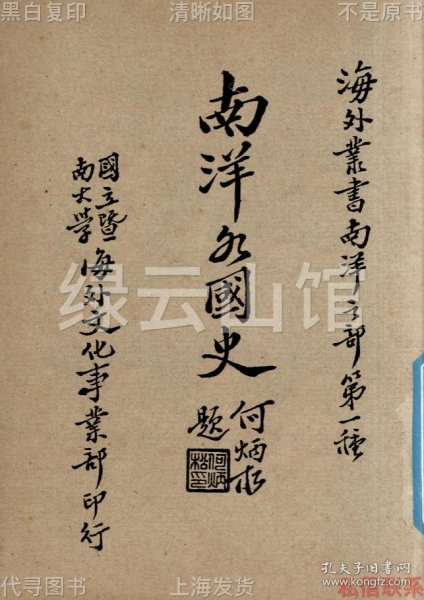 黑白复印
清晰如图
不是原书
海外叢書南洋之部第一種
南洋各國史
何炳松
題
何炳
松印
國立暨
南大學
海外文化事業部印行
绿云山馆
孔夫子旧书网
www.kongfz.com
代寻图书
上海发货
私信联系